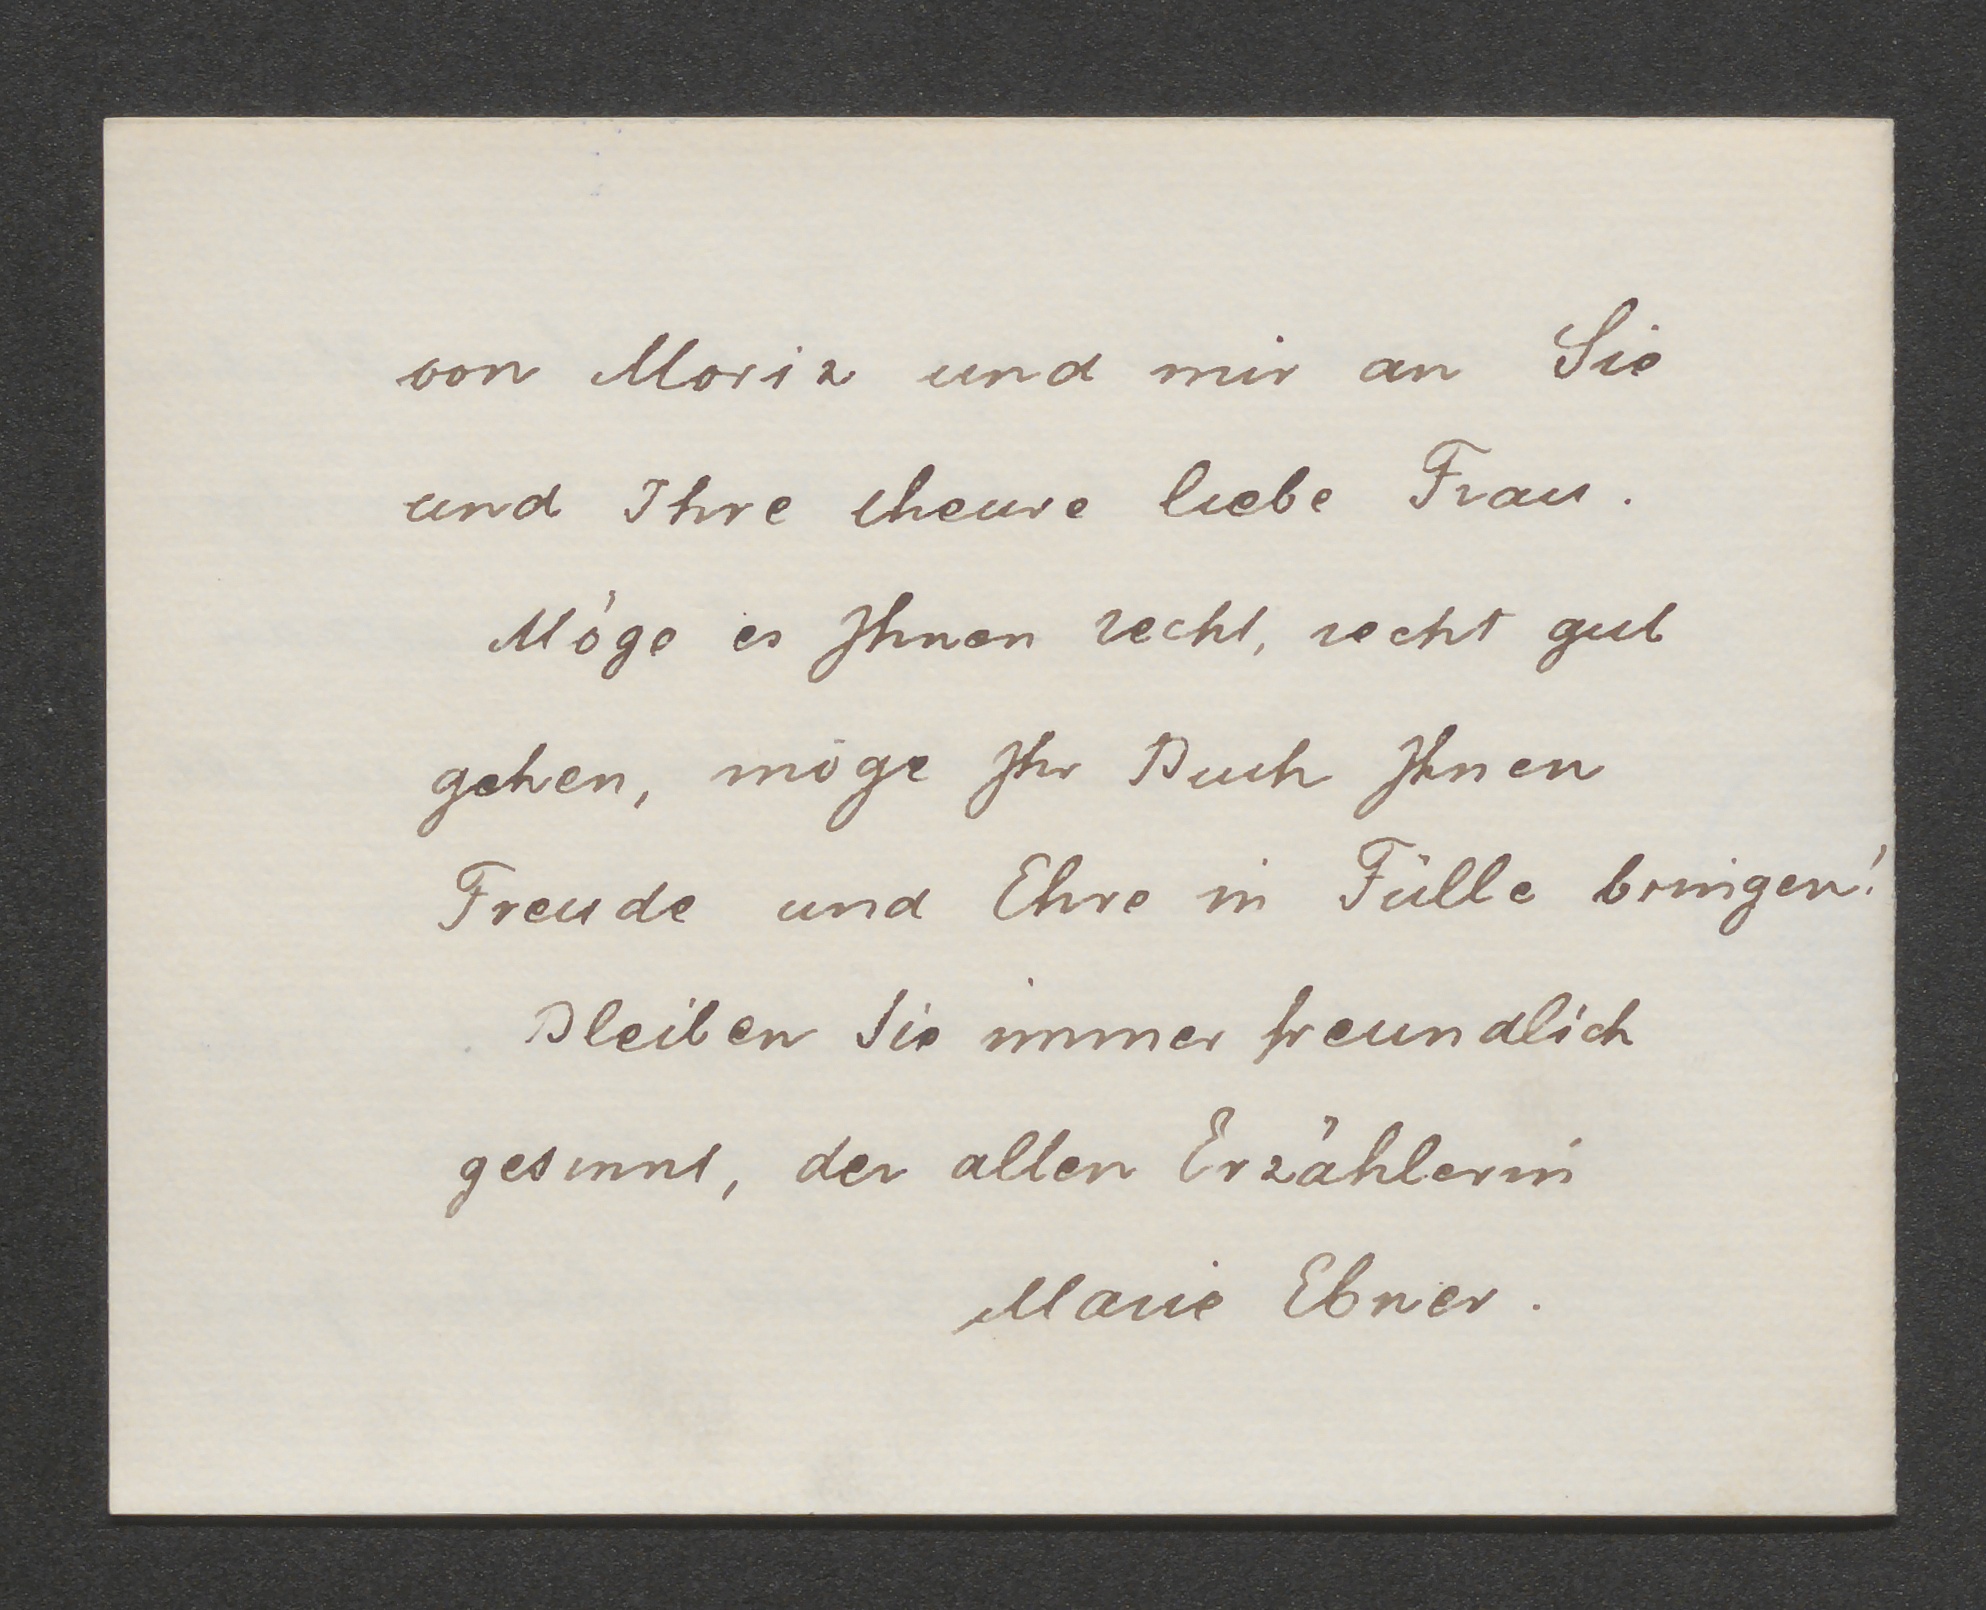 von Moriz und mir an Sie
und Ihre theure liebe Frau.
Möge es Ihnen recht, recht gut
gehen, möge Ihr Buch Ihnen
Freude und Ehre in Fülle bringen!
Bleiben Sie immer freundlich
gesinnt, der alten Erzählerin
Marie Ebner.